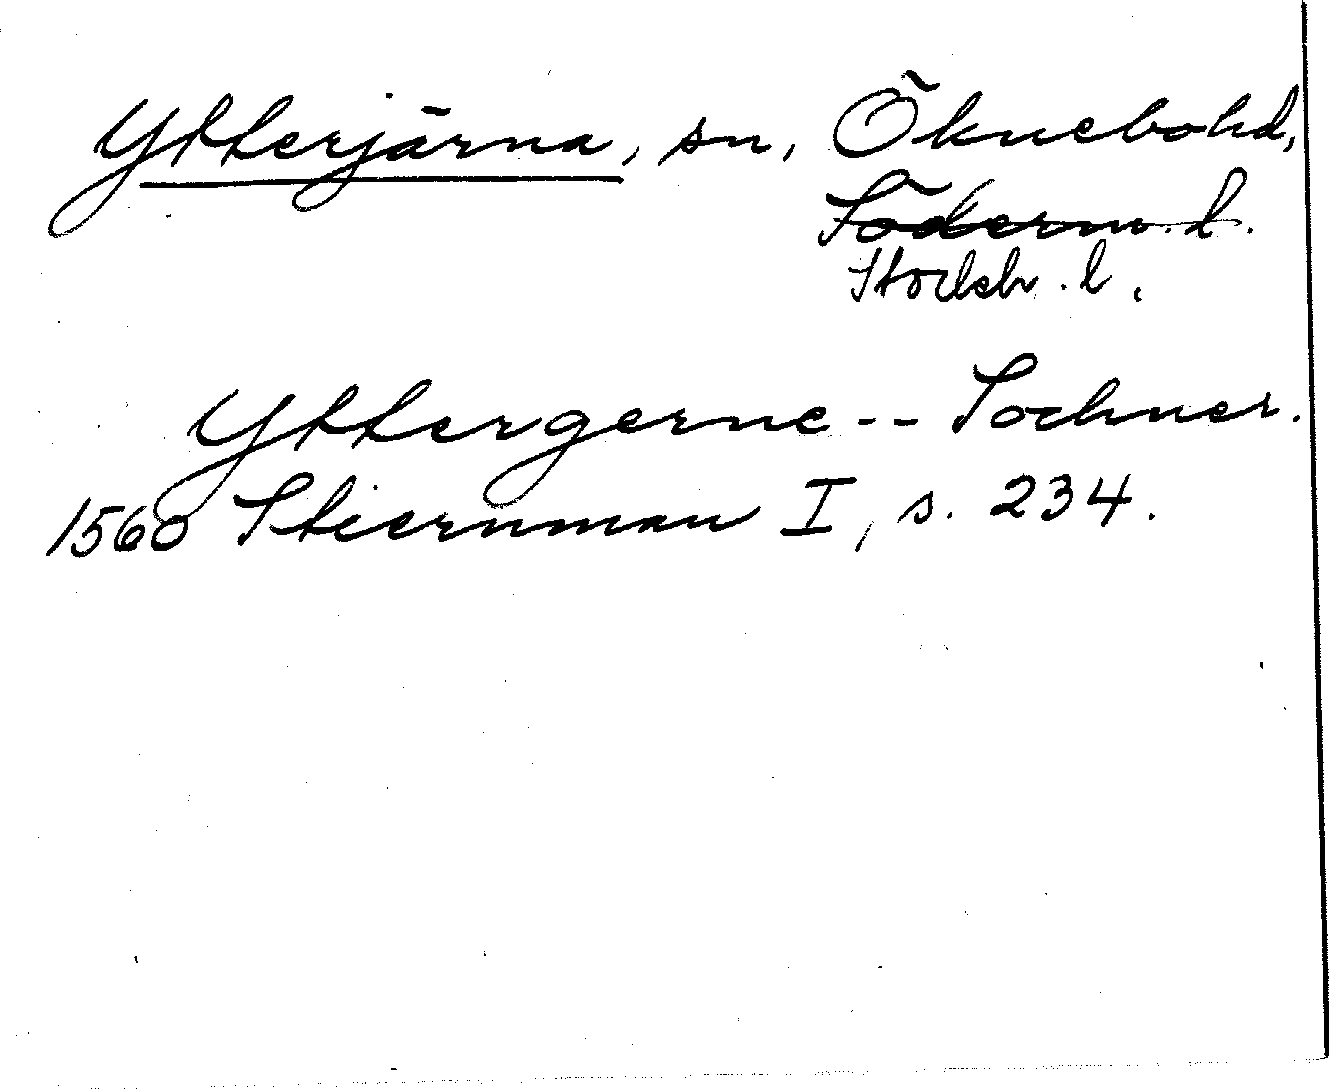 Ytterjärna, sn, Öknebo hd,
Söderm. l.
Stockh. l.
Yttergerne -- Sochner.
1560 Stiernman I, s. 234.